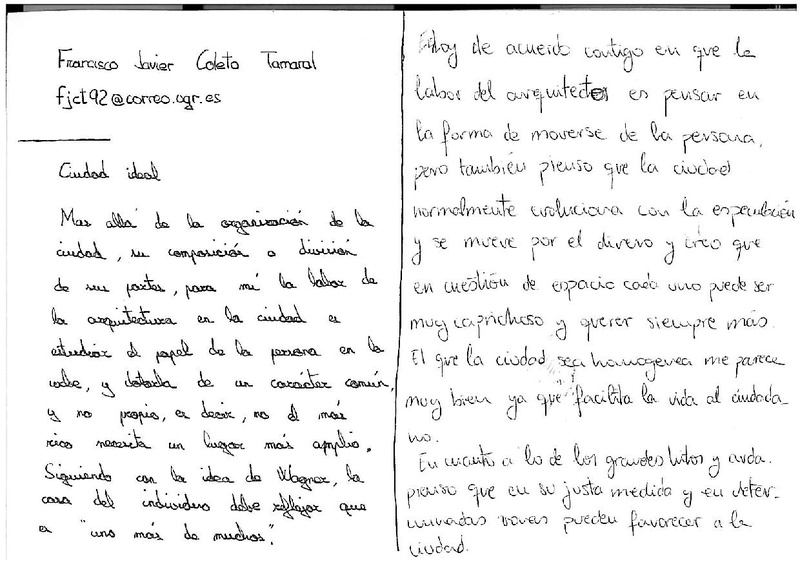 Francisco Javier Coleto Tamaral
fjct92@correo.ugr.es
Ciudad ideal
Mas allá de la organización de la
ciudad, su composición o división
de sus partes, para mí la labor de
la arquitectura en la ciudad es
estudiar el papel de la persona en la
urbe, y dotarla de un carácter común,
y no propio, es decir, no el más
rico necesita un lugar más amplio.
Siguiendo con la idea de Wagner, la
casa del individuo debe reflejar que
es "uno más de muchos".
Estoy de acuerdo contigo en que la
labor del arquitecto es pensar en
la forma de moverse de la persona,
pero también pienso que la ciudad
normalmente evoluciona con la especulación
y se mueve por el dinero y creo que
en cuestión de espacio cada uno puede ser
muy caprichoso y querer siempre más.
El que la ciudad sea homogenea me parece
muy bien ya que facilita la vida al ciudada-
no.
En cuanto a lo de los grandes hitos y avda.
pienso que en su justa medida y en deter-
minadas zonas pueden favorecer a la
ciudad.